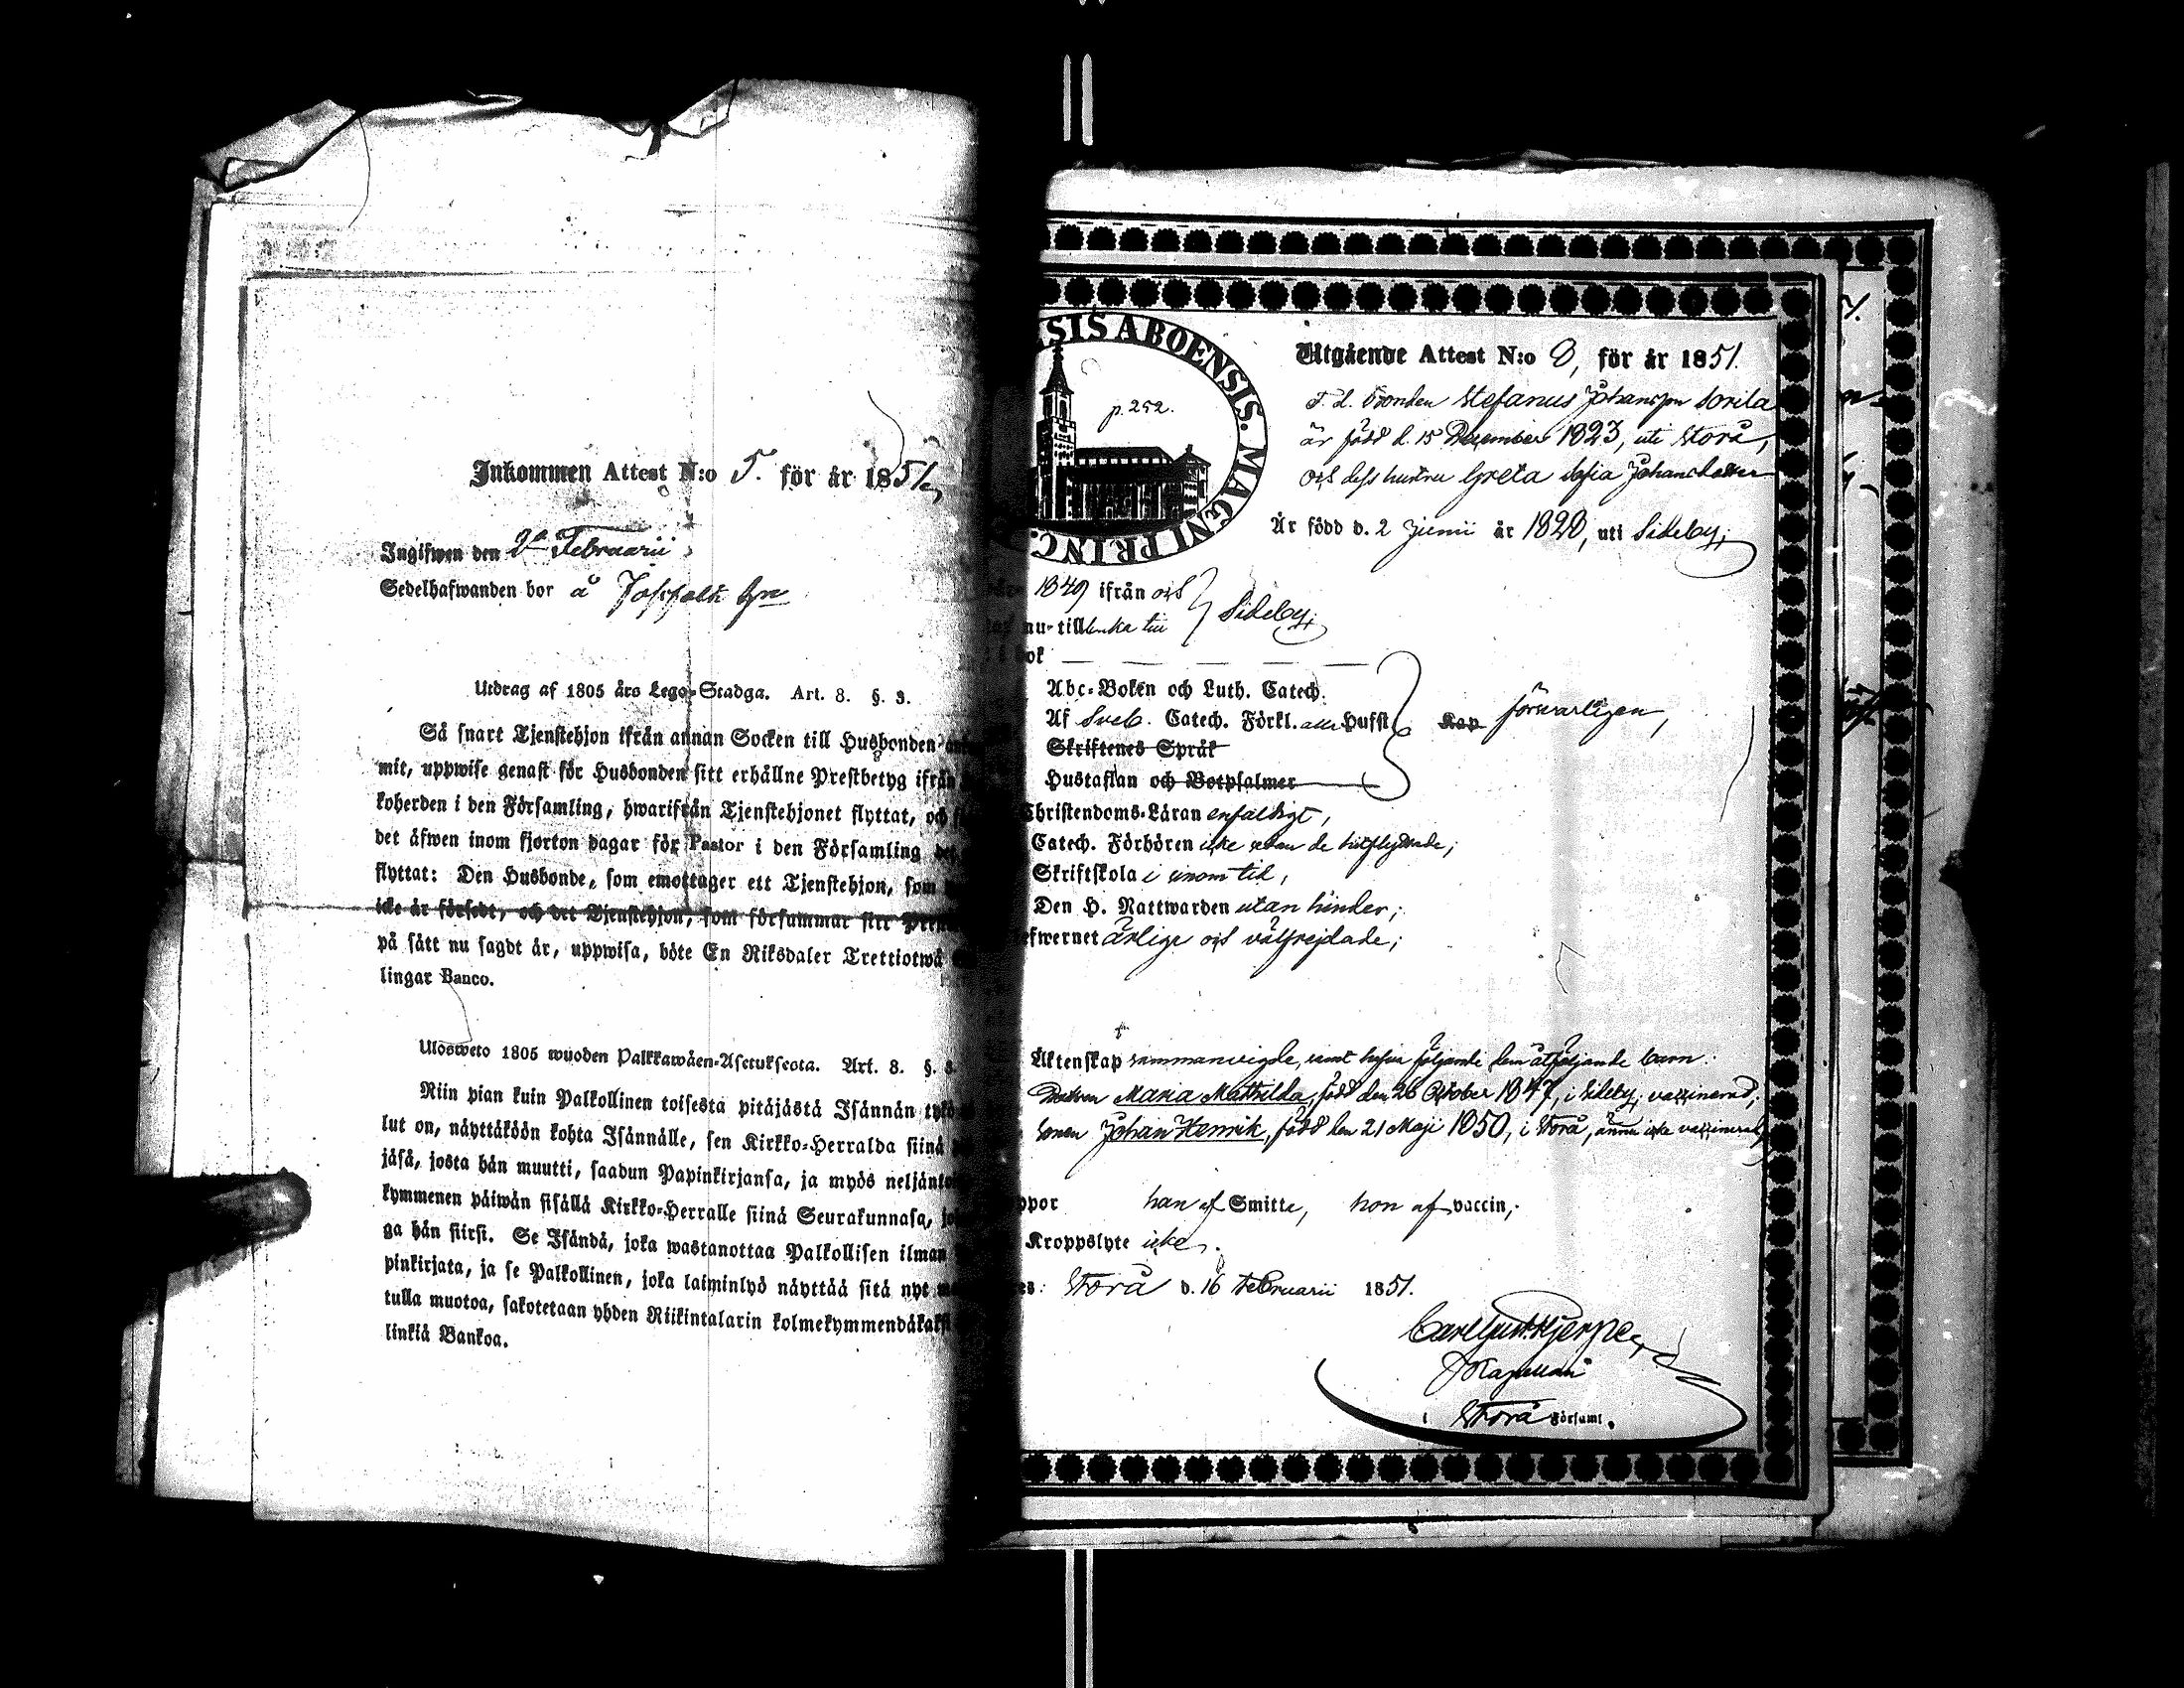 Inkommen Attest N:o 5. för år 1851,
Ingifwen den Februarii
Sedelhafwanden bor å
Utdrag af 1805 års Lego-Stadga. Art. 8. §. 3.
Så snart Tjenstehjon ifrån annan Socken till Husbonden
mit, uppwise genast för Husbonden sitt erhållne Prestbetyg ifrån
koherden i den Församling, hwarifrån Tjenstehjonet flyttat, och
det äfwen inom fjorton dagar för Pastor i den Församling
flyttat: Den Husbonde, som emottager ett Tjenstehjon, som
icke är försedt, och det Tjenstehjon, som försummar sitt
på sätt nu sagdt är, uppwisa, böte En Riksdaler Trettiotwå
lingar Banco.
Ulosweto 1805 wuoden Palkkawäen-Asetuksesta. Art. 8. §. 3.
Niin pian kuin Palkollinen toisesta pitäjästä Isännän
lut on, näyttäköön kohta Isännälle, sen Kirkko-Herralda siinä
jäsä, josta hän muutti, saadun Papinkirjansa, ja myös
kymmenen päiwän sisällä Kirkko-Herralle siinä Seurakunnasa,
ga hän siirsi. Se Isändä, joka wastanottaa Palkollisen ilman
pinkirjata, ja se Palkollinen, joka laiminlyö näyttää sitä nyt
tulla muotoa, sakotetaan yhden Riikintalarin kolmekymmendäkaksi
linkiä Bankoa.
SIS ABOENSIS. MAGNI PRINC.
p. 252.
Utgående Attest N:o 8, för år 1851.
F. d. Bonden Stefanus Johansson Sorila
är född d. 15 December 1823, uti Storå,
och dess hustru Greta Sofia Johansdotter
Är född d. 2 Junii år 1828, uti Sideby;
1849 ifrån och
nu till Sideby;
bok
Abc-Boken och Luth. Catech.
Af Sveb. Catech. Förkl. Hufst. Kap förswarligen,
Skriftenes Språk
Hustaflan och Botpsalmer
Christendoms-Läran enfaldigt,
Catech. Förhören icke sedan de hitflyttade;
Skriftskola i sinom tid,
Den H. Nattwarden utan hinder;
efwernet ärlige och välfrejdade;
Äktenskap sammanvigde, samt hafva följande dem åtföljande barn:
Dottren Maria Mathilda, född den 26 October 1847, i Sideby, vaccinerad;
Sonen Johan Henrik, född den 21 Maji 1850, i Storå, ännu icke vaccinerad;
ppor han af Smitta, hon af vaccin;
Kroppslyte icke.
es: Storå d. 16 Februarii 1851.
Carl Gust. Hjerpe,
Kapellan
i Storå Församl.